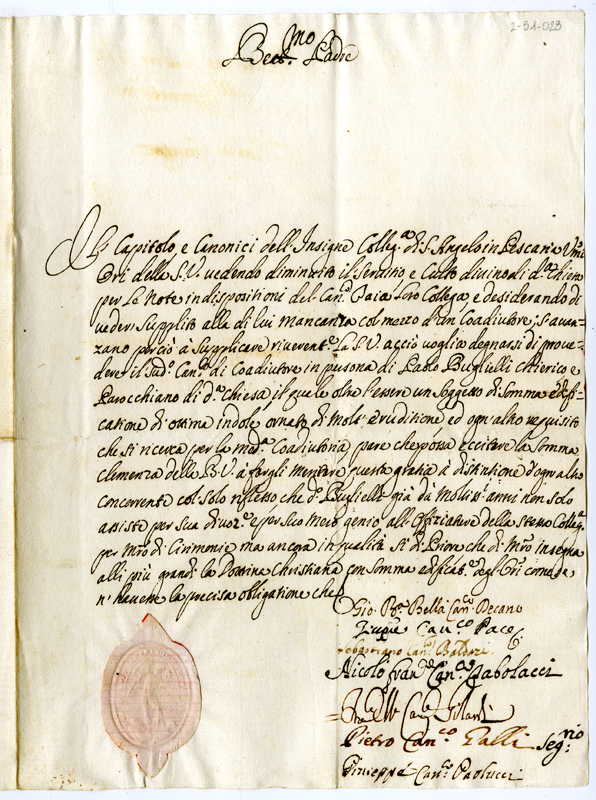 2-51-023
Beat.mo Padre
Il Capitolo, e Canonici dell'Insigne Colleg.a di S. Angelo in Pescaria Um.i
Ori della S. V. vedendo diminuito il Servizio, e Culto divino di d.a Chiesa
per le Note indispositioni del Can.co Paia loro Collega, e desiderando di
veder supplito alla di lui mancanza col mezzo d'un Coadiutore, s'avan=
zano perciò à supplicare riverent.e la S. V. acciò voglia degnarsi di prove=
dere il sud.o Can.co di Coadiutore in persona di Paolo Buglielli Chierico e
Parocchiano di d.a chiesa, il quale oltre l'essere un soggetto di somma edifi=
catione di ottima indole, ornato di molt'eruditione, ed ogn'altro requisito
che si ricerca per la med.a Coadiutoria, pare che possa eccitare la somma
clemenza della S. V. à fargli meritare questa gratia à distintione d'ogn'altro
concorrente col solo riflesso, che d.o Buglielli già da molti anni non solo
assiste per sua divoz.e e per suo mero genio all'Offiziature della stessa Colleg.a
per Mro di Cerimonie, ma ancora in qualità sì di Priore che di Mro insegna
alli più grandi la Dottrina Christiana con somma edificat.e degl'Ori come da
n'havesse la precisa obligatione che
Gio. Bella Can.co Decano
Can.co Pace
Sebastiano Can.co
Nicolò Fran.co Can.co Cabolacci
Can.co Gilardi
Pietro Can.co Galli Seg.rio
Giuseppe Can.co Paolucci